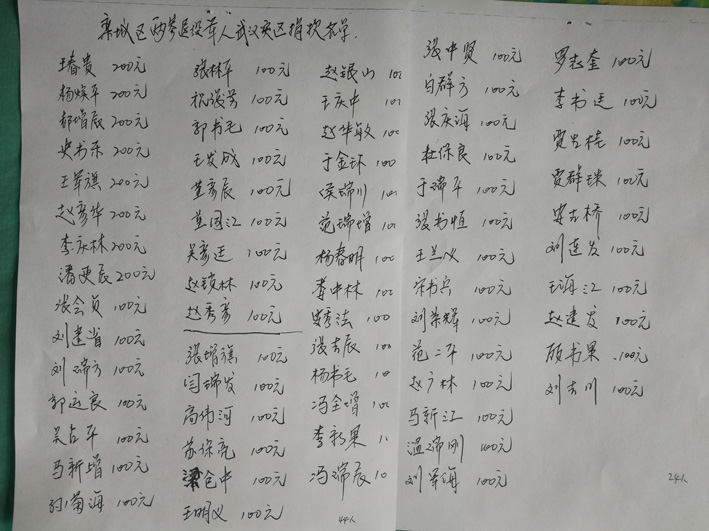 栾城区两参退役军人武汉疫区捐款名单.
王春贵 200元
杨焕平 200元
郝增辰 200元
史书乐 200元
王军旗 200元
赵彦华 200元
李庆林 200元
潘更辰 200元
张会贞 100元
刘建省 100元
刘瑞方 100元
郭返良 100元
吴占平 100元
马新增 100元
孙菊海 100元
张林平 100元
100元
郭书毛 100元
王发成 100元
董彦辰 100元
董国江 100元
吴彦廷 100元
赵锁林 100元
赵秀彦 100元
张增旗 100元
闫瑞发 100元
高伟河 100元
苏保亮 100元
梁仓中 100元
王明义 100元
44人
赵银山 100
王庆中 100
赵华敏 100
于金环 100
侯瑞川 100
范瑞增 100
杨春明 100
李中林 100
史秀法 100
张吉辰 100
杨书毛 10
冯全增 100
李新果 10
冯瑞辰 10
张中贤 100元
白群方 100元
张庆海 100元
杜保良 100元
于瑞平 100元
张书恒 100元
王兰义 100元
宋书兵 100元
刘荣辉 100元
范二平 100元
赵广林 100元
马新江 100元
温瑞刚 100元
刘军海 100元
罗志奎 100元
李书廷 100元
贾吉柱 100元
贾群珠 100元
安吉桥 100元
刘连发 100元
王海江 100元
赵建发 100元
顾书果 100元
刘吉川 100元
24人